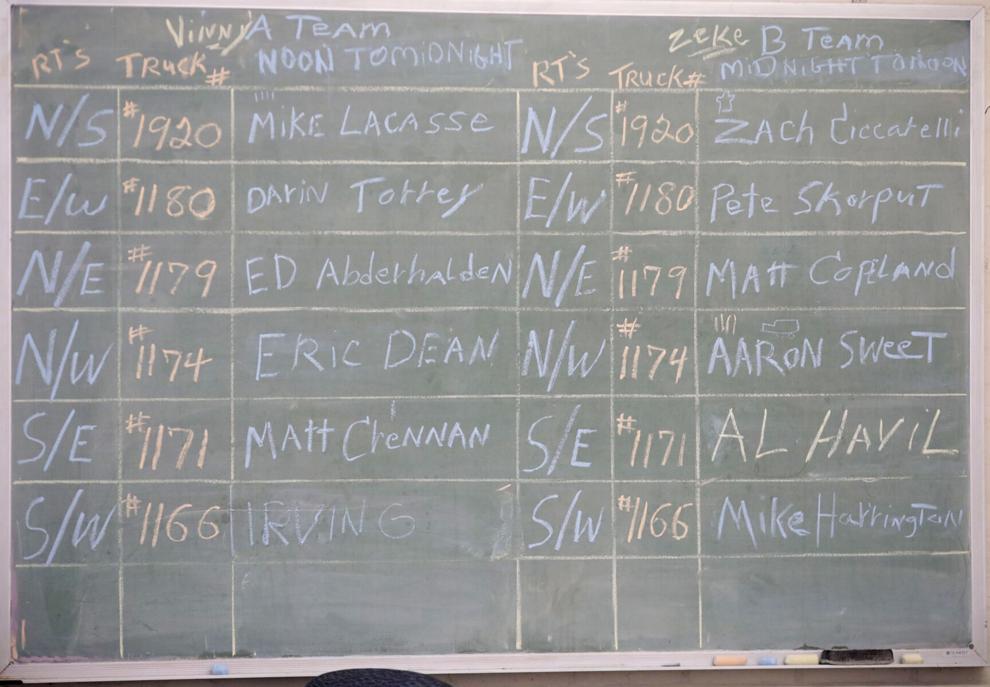 Vinny A TEAM ZEKE B TEAM
RT'S TRUCK # NOON TO MIDNIGHT RT'S TRUCK # MIDNIGHT TO NOON
N/S #1920 MIKE LACASSE N/S #1920 ZACh Ciccatelli
E/W #1180 DARIN Torrey E/W #1180 Pete SkorpuT
N/E #1179 ED AbderhaldeN N/E #1179 MATT CopELAND
N/W #1174 ERIC DEAN N/W #1174 AARON SweeT
S/E #1171 MATT CreNNAN S/E #1171 AL HAViL
S/W #1166 IRVING S/W #1166 Mike HarringTon